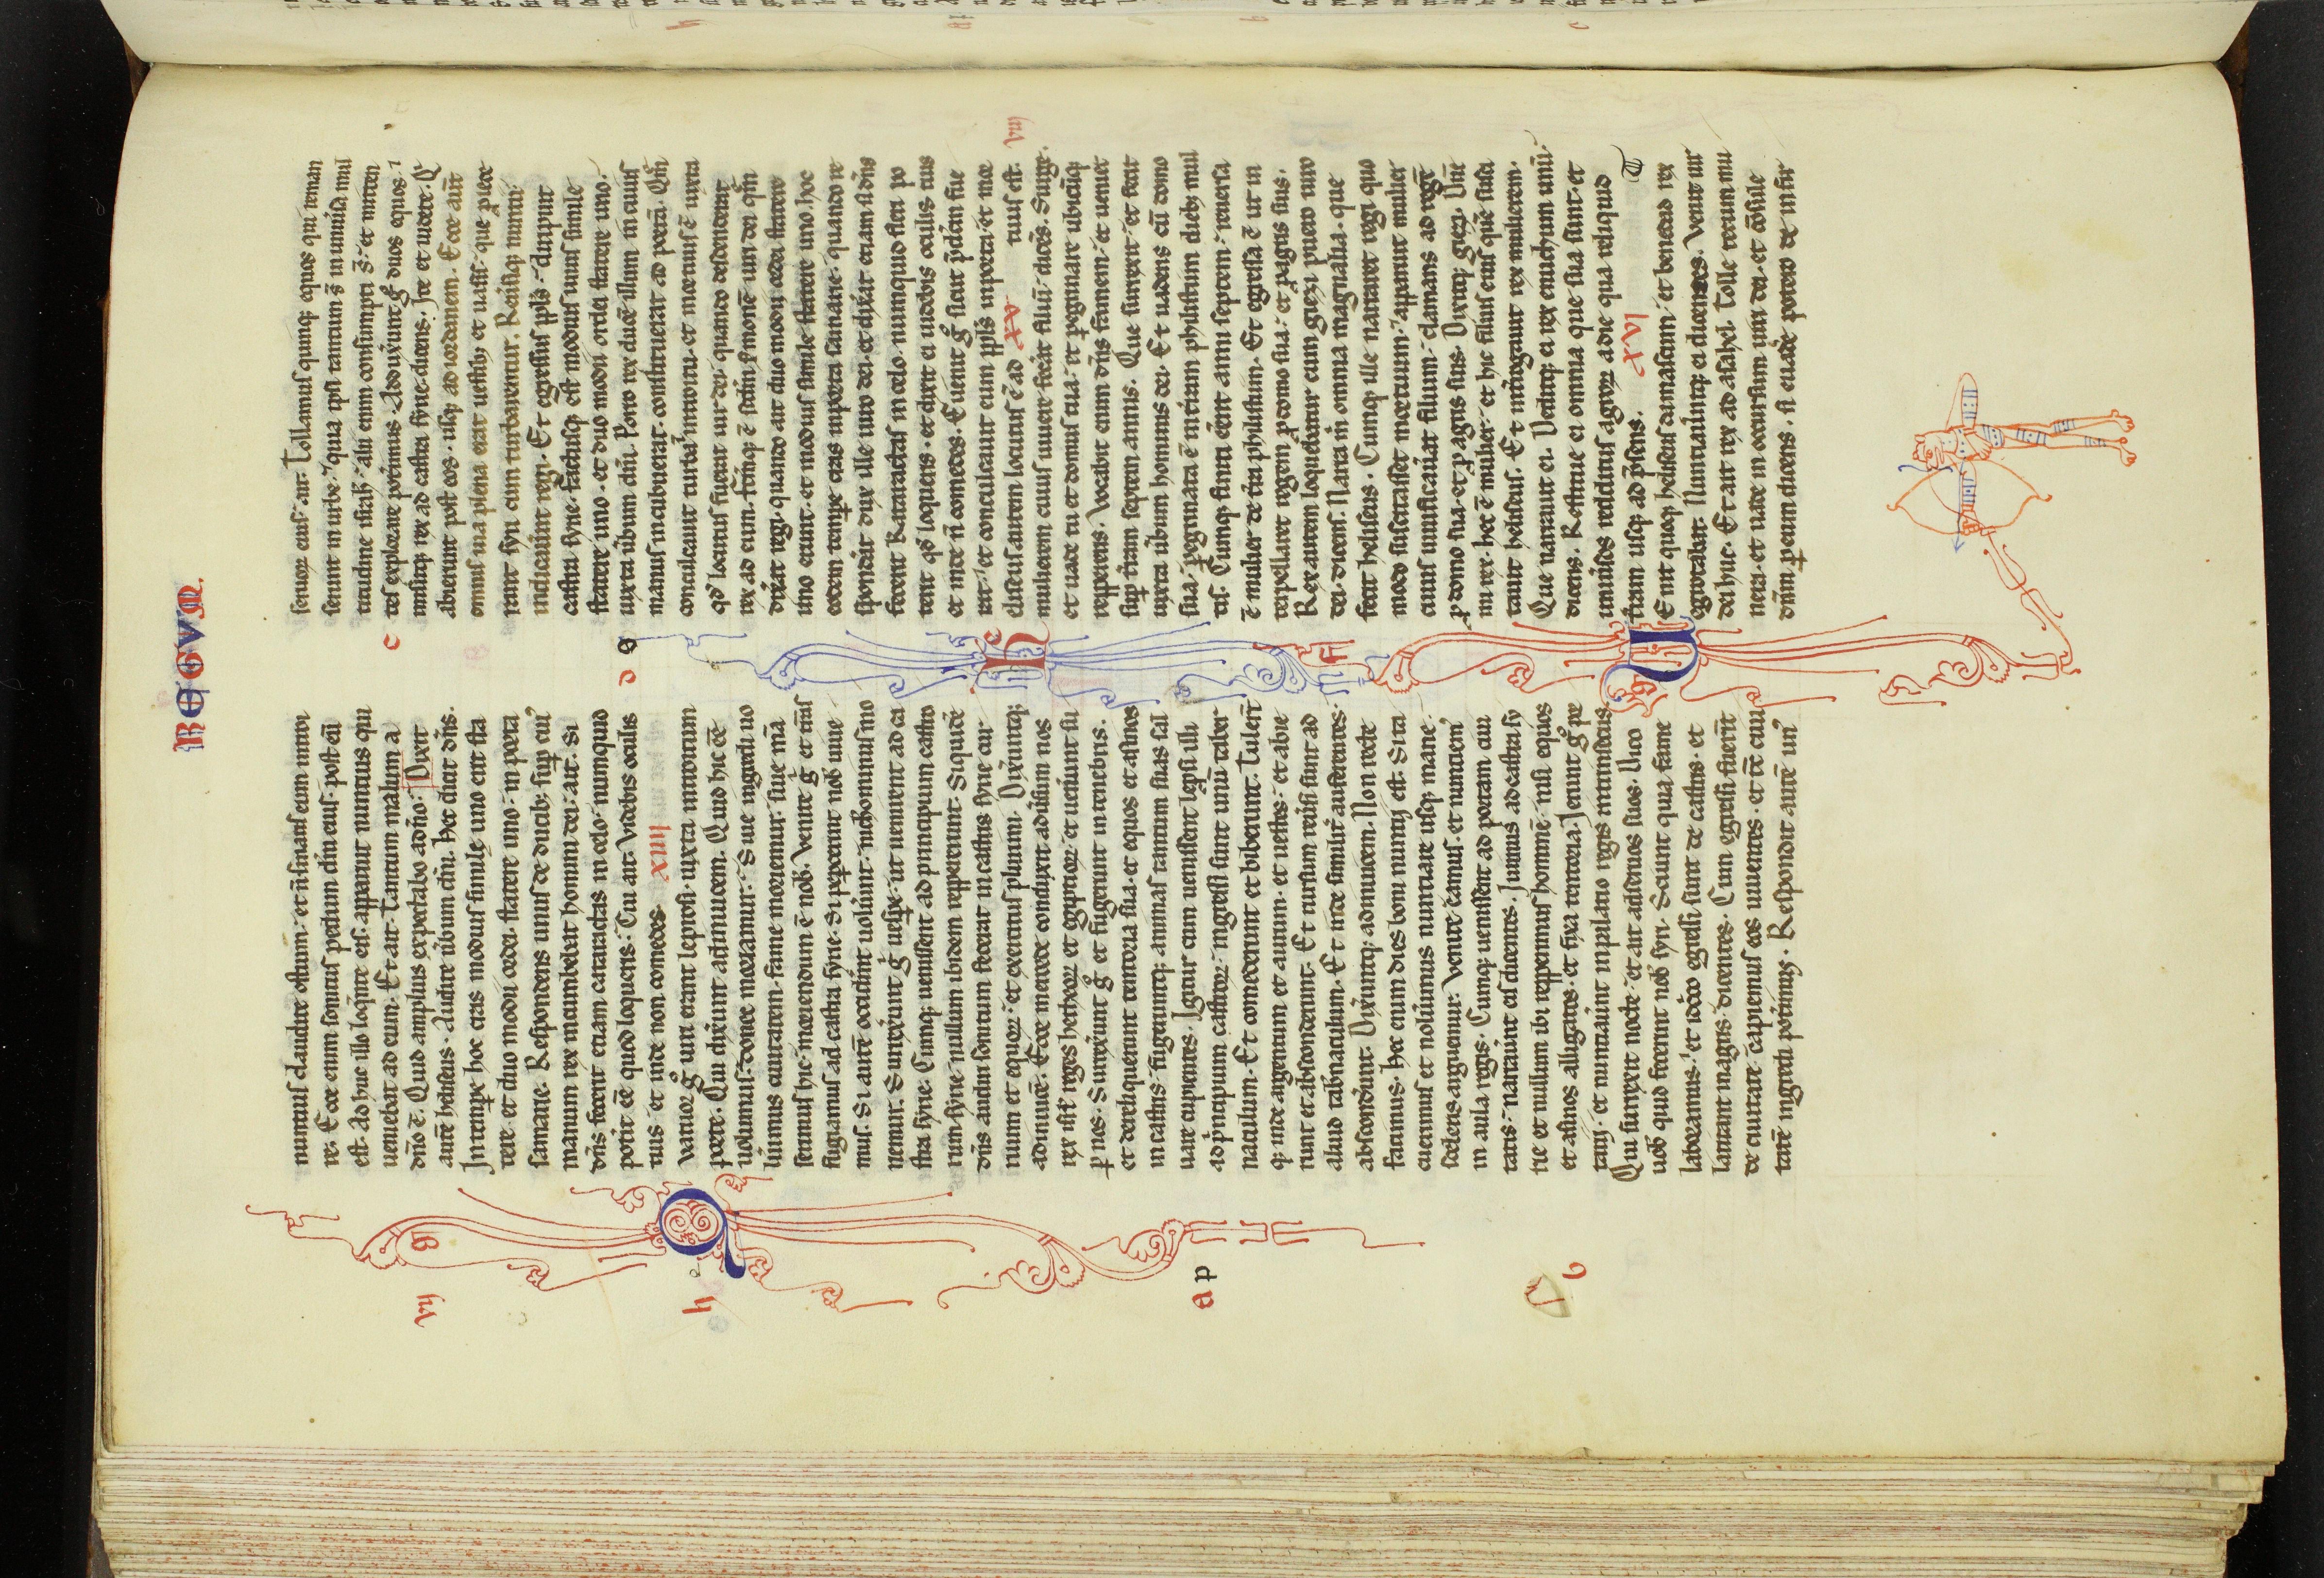 REGVM.
nuntius claudite ostium: et ñ sinatis eum introi
re. Ecce enim sonitus pedum dñi eius post eũ
est. Ad huc illo loq̃nte eis. apparuit nuntius qui
ueniebat ad eum. Et ait. Tantum malum a
dño ẽ. Quid amplius expectabo a dño: Dixit
autẽ heliseus. Audite ũbum dñi. Hec dicit dñs.
In tempe hoc cras modius simile uno erit sta
tere. et duo modii ordei. statere uno: in porta
samarie. Respondens unus de ducib; sup cui᾽
manum rex incumbebat homini dei: ait. Si
dñs fecerit etiam cataractas in celo: numquid
potit eẽ quod loqueris: Qui ait. Videbis oculis
tuis et inde non comedes. XIIII
Quatuor g̊ uiri erant leprosi. iuxta introitum
porte. Qui dix̃unt ad inuicem. Quid hic eẽ
uolumus: donec moriamur: Siue ingredi uo
luimus ciuitatem. fame moriemur: siue mã
serimus hic: moriendum ẽ nob̃. Venite g̊ et trãs
fugiamus ad castra syrie. Si pepcerint nob̃ uiue
mus. Si autẽ occidẽ uoluint. nichominus mo
riemur. Surrex̃unt g̊ uespe. ut uenirent ad ca
stra syrie. Cumq; uenissent ad principium castro
rum syrie. nullum ibidem repperierunt. Siquidẽ
dñs audiri sonitum fecerat in castris syrie cur
ruum et equor̃. et exercitus plurimi. Dix̃untq;
ad inuicẽ. Ecce mercede conduxit aduersum nos
rex isrl̃ reges hetheor̃ et egiptior̃. et uen̾unt su
p nos. Surrex̃unt g̊ et fugerunt in tenebris.
et dereliquerunt tentoria sua. et equos et asinos
in castris. fugieruntq; animas tantum suas sal
uare cupientes. Igitur cum uenissent leprosi illi
ad principium castror̃. ingressi sunt unũ taber
naculum. Et comederunt et biberunt. Tulerũt
q; inde argentum et aurum. et uestes. et abie
runt et absconderunt. Et rursum reuersi sunt ad
aliud tab̃naculum. Et inde similiẽ auferentes.
abscond̾unt. Dix̃untq; ad inuicem. Non recte
facimus. Hec enim dies boni nuntii est. Si ta
cuerimus et noluimus nuntiare usq; mane.
sceleris arguemur. Venite eamus. et nuntiem᾽
in aula regis. Cumq; uenissent ad portam ciui
tatis. narrauert̃ eis dicentes. Iuimus ad castra sy
rie et nullum ibi reppimus hominẽ. nisi equos
et asinos alligatos. et fixa tentoria. Ierunt g̊ por
tarij. et nuntiauert̃ in palatio regis intrinsecus.
Qui surrexit nocte. et ait ad seruos suos. Dico
uob̃ quid fecerint nob̃ syri. Sciunt quia fame
laboramus. et idcirco egressi sunt de castris. et
latitant in agris dicentes. Cum egressi fuerĩt
de ciuitate. capiemus eos uiuentes. et tũc ciui
tatẽ ingredi poterimus. Respondit autẽ un᾽
seruor̃ eius. ait. Tollamus quinq; equos qui reman
serunt in urbe. quia ipsi tantum s̃ in uniuersa mul
titudine isrl̃. alii enim consumpti s̃. et mitten
tes explorare poterimus. Adduxerunt g̊ duos equos. 7
misitq; rex ad castra syrie dicens. Ite et uidete. Q
abierunt post eos. usq; ad iordanem. Ecce aũt
omnis uia plena erat uestib; et uasis. que piecere
rant syri cum turbarentur. Reũsiq; nuntii:
indicauert̃ regi. Et egressus ppl̃s. diripuit
castra syrie. factusq; est modius unius simile
statere uno. et duo modii ordei statere uno.
iuxta ũbum dñi. Porro rex ducẽ illum in cuius
manus incubuerat. constituerat ad portã. Quẽ
conculcauit turba in introitu. et mortuus ẽ iuxta
qđ locutus fuerat uir dei. quando descenderat
rex ad eum. factũq; ẽ scđm ẽ monẽ uiri dei quẽ
dix̃at regi. quando ait duo modii ordei statere
uno erunt. et modius simile statere uno hoc
eodem tempe cras in porta samarie. quando re
sponderat dux ille uiro dei. et dixerat. etiam si dñs
fecerit Kataractas in celo. numquid fieri po
terit qđ loqueris. et dixit ei uidebis oculis tuis
et inde ñ comedes. Euenit g̊ sicut p̃dcm fue
rat. et conculcauit eum ppl̃s in porta. et mor
eliseus autem locutus ẽ ad XV tuus est. VIII
mulierem cuius uiuere fecit filiũ. dicẽs. Surge.
et uade tu et domus tua. et pegrinare ubicũq;
reppereris. Vocabit enim dñs famem. et ueniet
sup terram septem annis. Que surrexit. et fecit
iuxta ũbum hominis dei. Et uadens cũ domo
sua. pegrinata ẽ in terram philistium diebʒ mul
tis. Cumq; finiti eẽnt anni septem. reuersa
ẽ mulier de t̃ra philistium. Et egressa ẽ ut in
terpellaret regem p domo sua. et p agris suis.
Rex autem loquebatur cum giezi puero uiri
dei. dicens. Narra m̾ omnia magnalia. que
fecit heliseus. Cumq; ille narraret regi quo
modo suscitasset mortuum. apparuit mulier
cuius uiuificauerat filium. clamans ad regẽ
p domo sua. et p agris suis. Dixitq; giezi. Dñe
mi rex. hec ẽ mulier. et hic filius eius quẽ susci
tauit heliseus. Et int̾rogauit rex mulierem.
Que narrauit ei. Deditq; ei rex eunuchum unũ.
dicens. Restitue ei omnia que sua sunt. et
uniuersos redditus agror̃ a die qua reliquid
terram usq; ad p̃sens. XVI
Uenit quoq; heliseus damascum. et benedad rex
egrotabat. Nuntiauerntq; ei dicentes. Venit uir
dei huc. Et ait rex ad asahel. Tolle tecum mu
nera. et uade in occursum uiri dei. et cõsule
dñm p eum dicens. si euadẽ potero de infir